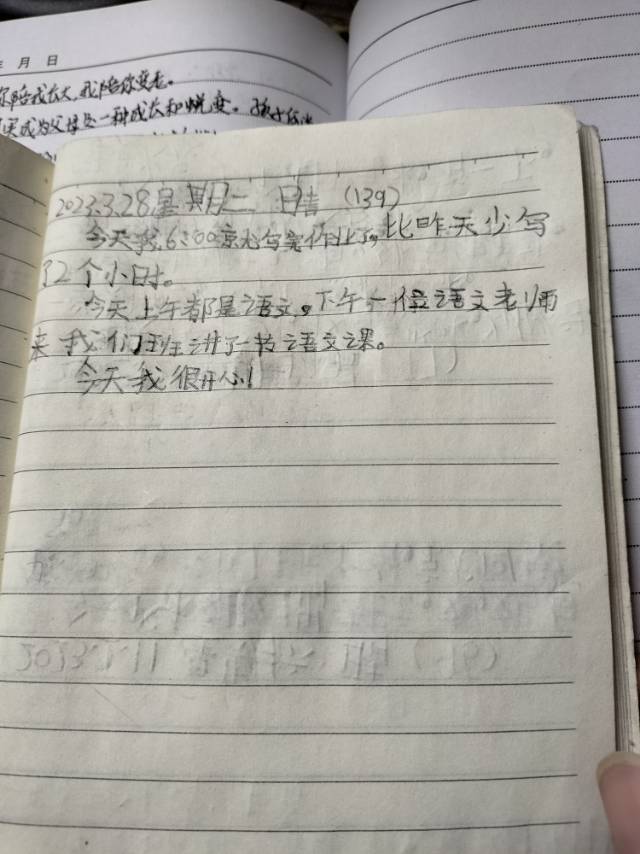 年 月 日
你陪我长大,我陪你变老。
实成为父母是一种成长和蜕变。孩子
2023.3.28星期二 日吉 (139)
今天我6:00京尤写完作业了,比昨天少写
了2个小时。
今天上午都是语文。下午一位语文老师
来我们班讲了一节语文课。
今天我很开心!